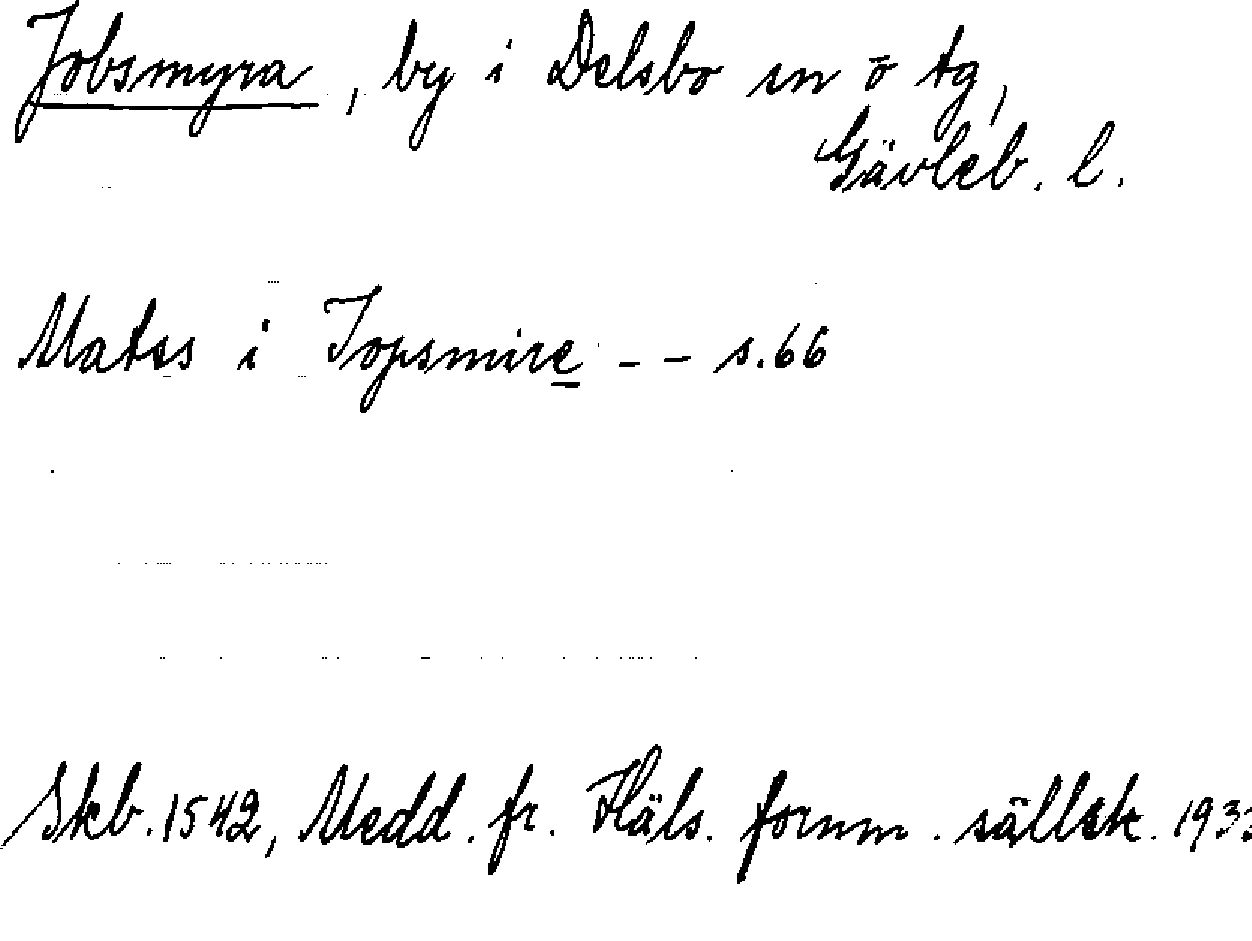 Jobsmyra, by i Delsbo sn o tg,
Gävleb. l.
Matss i Jopsmire - - s. 66
Skb. 1542, Medd. fr. Häls. fornm. sällsk.